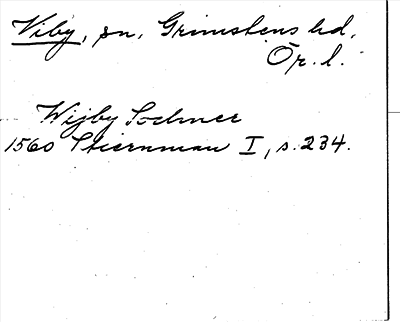 Viby, sn, Grimstens hd,
Ör. l.
Wijby Sochner
1560 Stiernman I, s. 234.